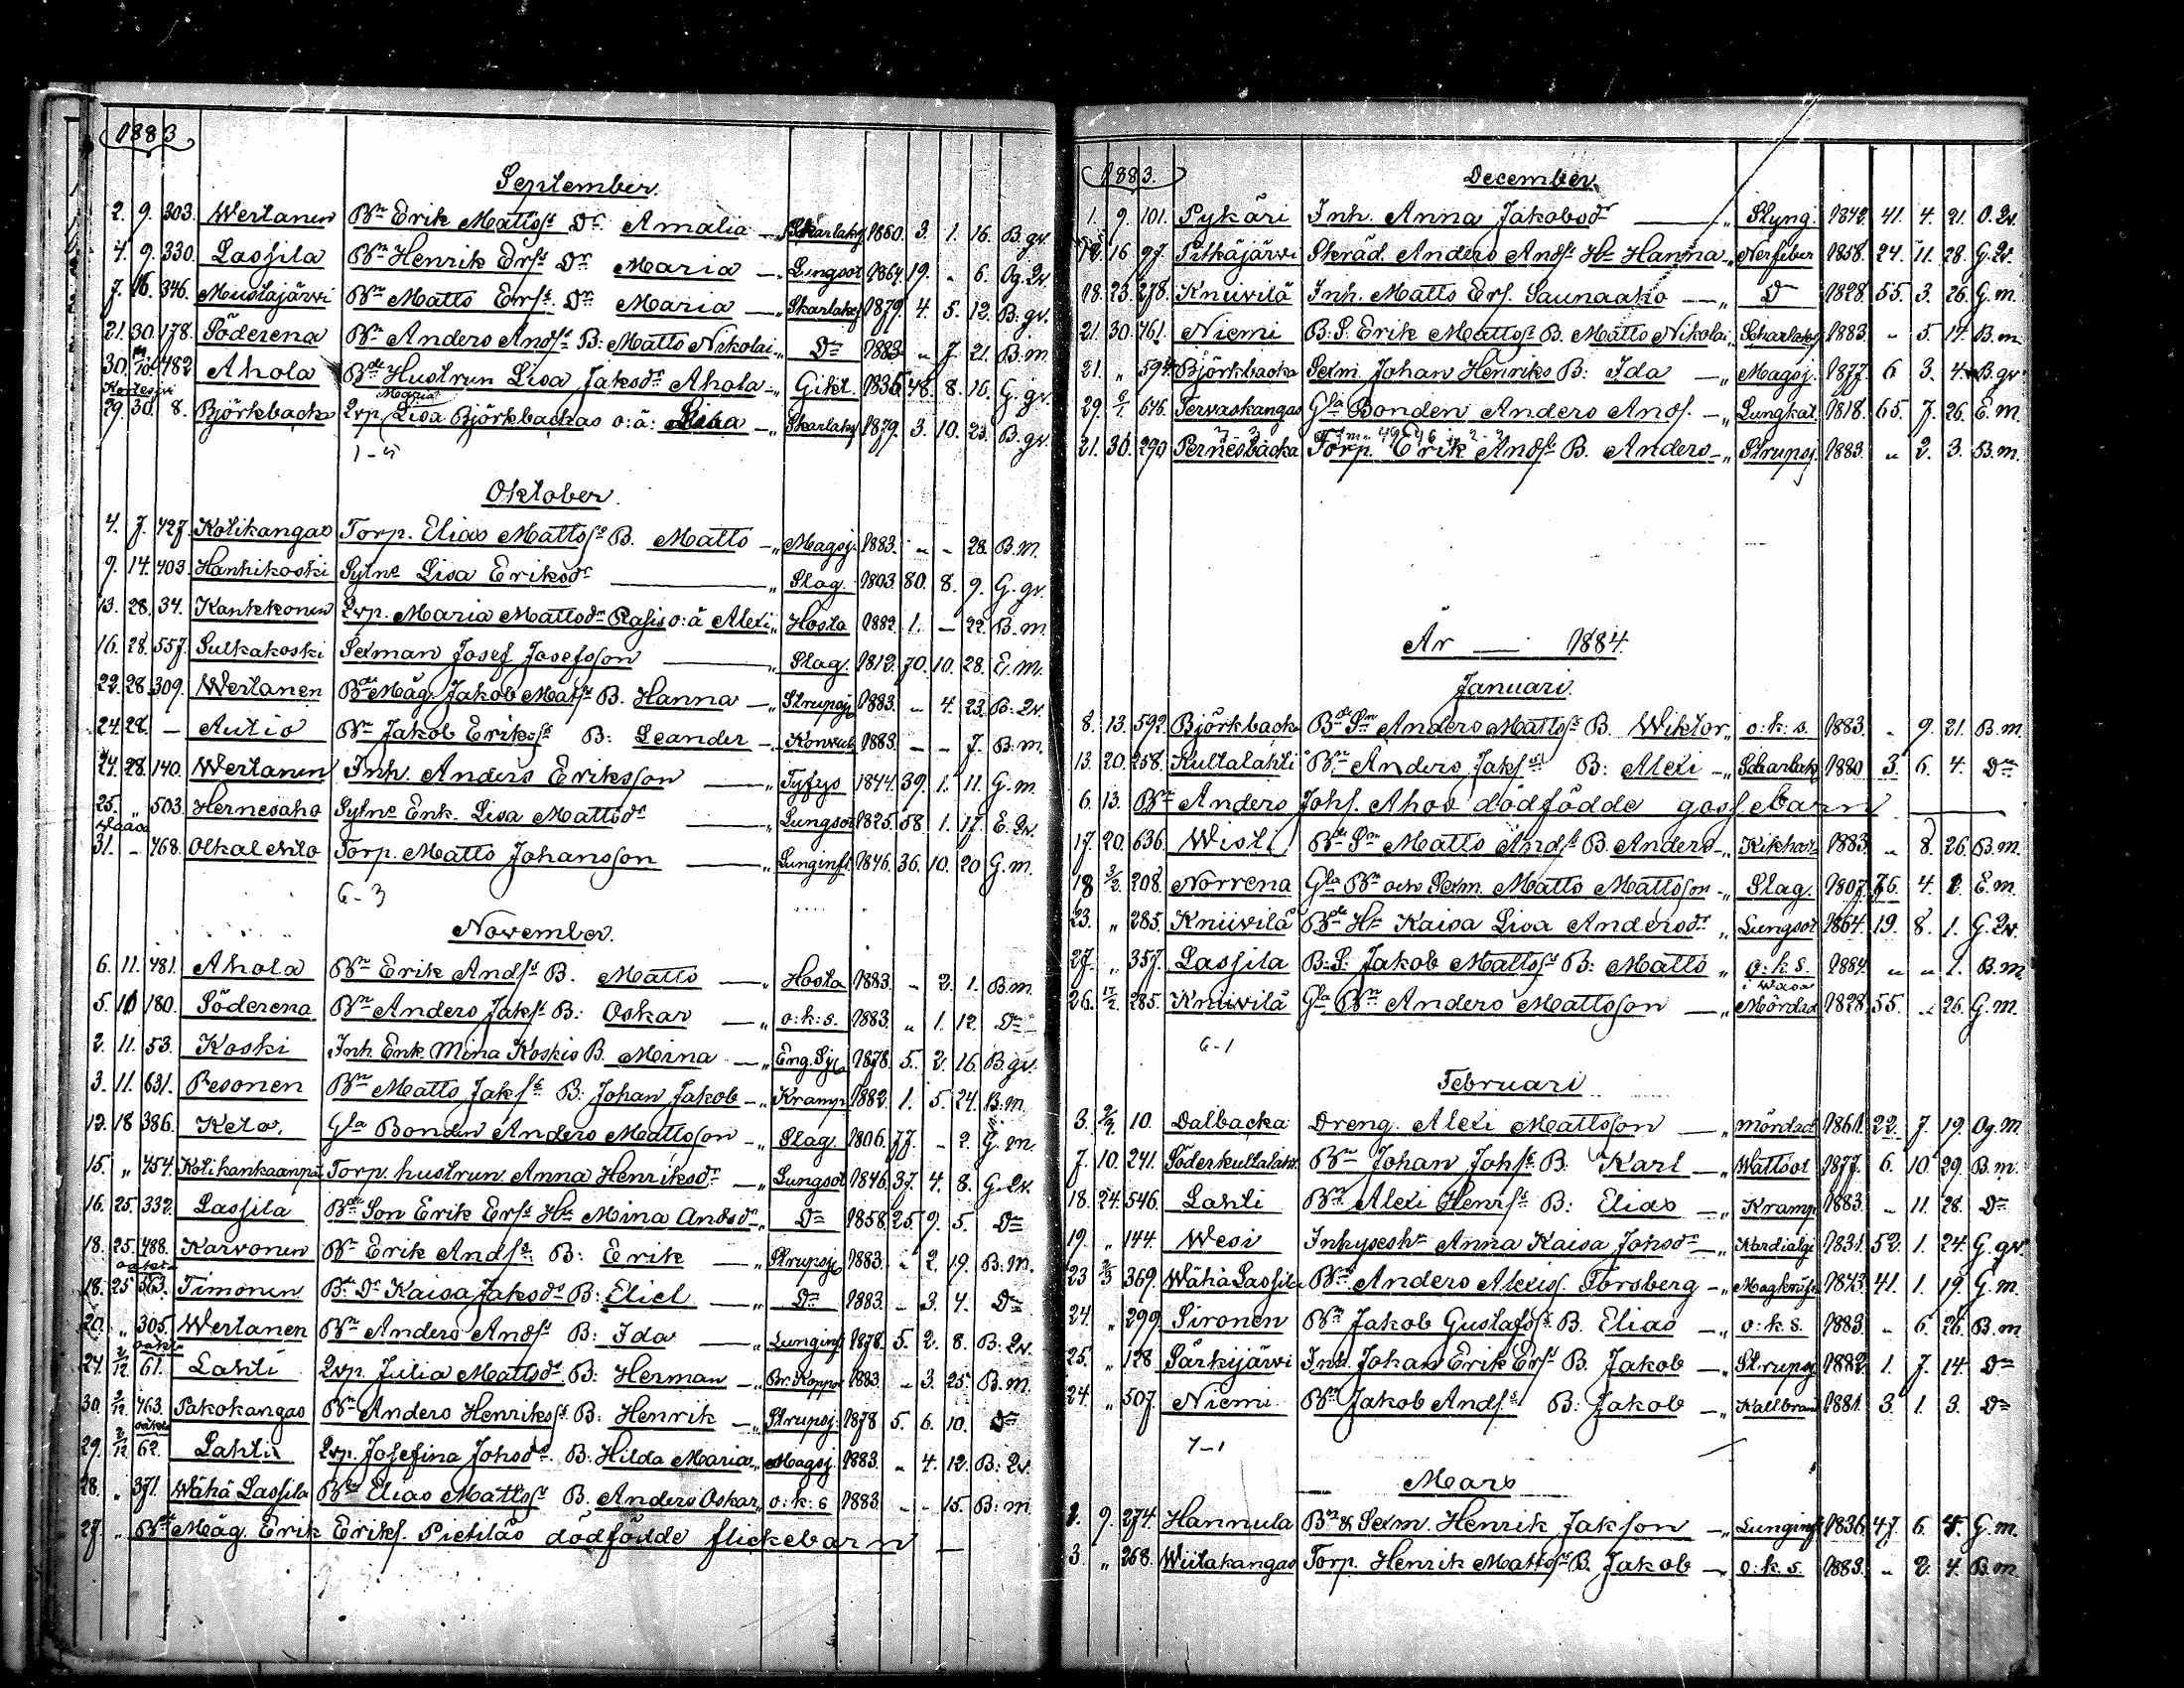 1883
September.
2. 9. 303. Wertanen Bn Erik Mattsn Dr Amalia —„ Skarlaksf 1880. 3. 1. 16. B.qv.
4. 9. 330. Lassila Bn Henrik Erss Dr Maria —„ Lungsot 1864. 19. „ 6. Og.Qv.
7. 16. 346. Mustajärvi Bn Matts Erss Dr Maria —„ Skarlaksf 1879. 4. 5. 12. B.qv.
21. 30. 178. Söderena Bn Anders Andss B: Matts Nikolai „ Do 1883. „ 7. 21. B.m.
30. 482 Ahola Bde Hustrun Lisa Jaksdr Ahola —„ Gikt. 1835 48. 8. 16. G.qv.
Kortesjvi Maria
29. 30. 8. Björkbacka Qvp. Lisa Björkbackas o:ä: Lisa —„ Skarlaksf 1879. 3. 10. 23. B.qv.
1-5
Oktober.
4. 7. 427. Kotikangas Torp. Elias Mattss B. Matts —„ Magsj. 1883. „ „ 28. B.m.
9. 14. 403. Hanhikoski Sytne Lisa Eriksdr — „ Slag. 1803. 80. 8. 9. G.qv.
13. 28. 34. Kankkonen Qvp. Maria Mattsdr Rasis o:ä Alexi „ Hosta 1882. 1. — 22. B.m.
16. 28. 557. Sulkakoski Sexman Josef Josefsson — „ Slag. 1812. 70. 10. 28. E.m.
22. 28. 309. Wertanen Bde Måg. Jakob Matss B. Hanna —„ Strupsj. 1883. „ 4. 23. B.Qv.
24. 28. — Autio Bn Jakob Erikss B: Leander —„ Konvuls 1883. — — 7. B.m.
24. 28. 140. Wertanen Inh. Anders Eriksson — „ Tyfys 1844. 39. 1. 11. G.m.
25. 503. Hernesaho Sytne Enk. Lisa Mattsdr — „ Lungsot 1825. 58. 1. 17. E.Qv.
Waasa
31. — 468. Olkalehto Torp. Matts Johansson — „ Lunginfl. 1846. 36. 10. 20 G.m.
6-3
November.
6. 11. 481. Ahola Bn Erik Andss B. Matts — „ Hosta 1883. „ 2. 1. B.m.
5. 10 180. Söderena Bn Anders Jakss B: Oskar — „ o:k:s. 1883. „ 1. 12. Do
2. 11. 53. Koski Inh. Enk. Mina Koskis B. Mina —„ Eng.Sj. 1878. 5. 2. 16. B.qv.
3. 11. 631. Pesonen Bn Matts Jakss B: Johan Jakob —„ Kramp. 1882. 1. 5. 24. B.m.
13. 18 386. Keto. Gla Bonden Anders Mattsson —„ Slag. 1806. 77. „ 2. G.m.
15. „ 454. Kotikankaanpää Torp. hustrun Anna Henriksdr —„ Lungsot 1846. 37. 4. 8. G.Qv.
16. 25. 332. Lassila Bde Son Erik Erss Hu Mina Andsdr „ Do 1858. 25 9. 5. Do
18. 25. 488. Karvonen Bn Erik Andss B: Erik — „ Strupsj. 1883. „ 2. 19. B:m.
18. 25 363. Timonen B: Dr Kaisa Jaksdr B: Eliel — „ Do 1883. „ 3. 4. Do
20. „ 305. Wertanen Bn Anders Andss B: Ida — „ Lunginf. 1878. 5. 2. 8. B:Qv.
24. 2/12 61. Lahti Qvp. Julia Mattsdr B: Herman —„ Br. Koppor 1883. „ 3. 25. B.m.
30. 2/12 463. Pakokangas Bn Anders Henrikss B: Henrik —„ Strupsj. 1878 5. 6. 10. Do
29. 2/12 62. Lahti Qvp. Josefina Johsdr. B: Hilda Maria „ Magsj. 1883. „ 4. 12. B:Qv.
28. „ 371. Wähä Lassila Bn Elias Mattss B. Anders Oskar „ o:k:s 1883. — — 15. B:m.
27. „ Bde Måg. Erik Eriks. Pietiläs dödfödde flickebarn —
1883.
December.
1. 9. 101. Pykäri Inh. Anna Jakobsdr — „ Styng. 1842. 41. 4. 21. O.Qv.
12. 16 97. Pitkäjärvi Skräd. Anders Ands. Hu Hanna „ Nerffeber 1858. 24. 11. 28. G.Qv.
18. 23. 278. Kniivilä Inh. Matts Ers. Saunaaho — „ Do 1828. 55. 3. 26. G.m.
21 30. 461. Niemi B:S. Erik Mattss B. Matts Nikolai „ Scharlaksf 1883. „ 5. 14. B.m.
21. „ 594. Björkbacka Sexm. Johan Henriks B: Ida —„ Magsj. 1877. 6 3. 4. B.qv
29. 6/1 646. Tervaskangas Gla Bonden Anders Ands. —„ Lungkat. 1818. 65. 7. 26. E.m.
21. 30. 290 Pernesbacka Torp. Erik Andss B. Anders —„ Strupsj. 1883. „ 2. 3. B.m.
År — 1884.
Januari.
8. 13. 592. Björkbacka Bde Sn Anders Mattss B. Wiktor „ o:k:s. 1883. „ 9. 21. B.m
13. 20. 258. Kultalahti Bn Anders Jakss B: Alexi —„ Scharlak. 1880 3. 6. 4. Do
6. 13. Bn Anders Johs. Ahos dödfödde gossebarn —
17. 20. 636. Wisti Bde Sn Matts Andss B. Anders —„ Kikhos. 1883. „ 8. 26. B.m.
18 3/2. 208. Norrena Gla Bn och Sexm. Matts Mattsson —„ Slag. 1807. 76. 4. 1. E.m.
23. „ 285. Kniivilä Bde Hu Kaisa Lisa Andersdr „ Lungsot 1864. 19. 8. 1. G.Qv.
27. „ 357. Lassila B:S. Jakob Mattss B: Matts „ o:k:s. 1884. „ „ 1. B.m
i Wasa
26. 17/2. 285. Kniivilä Gla Bn Anders Mattsson —„ Mördad 1828. 55. „ 26. G.m.
6-1
Februari
3. 10. Dalbacka Dreng Alexi Mattsson — „ mördad 1861. 22. 7. 19. Og.m.
7. 10. 241. Söderkultalahti Bn Johan Johss B: Karl —„ Wattsot 1877. 6. 10. 29. B.m.
18. 24. 546. Lahti Bn Alexi Henrss B: Elias —„ Kramp. 1883. — 11. 28. Do
19. „ 144. Wesi Inhyseshu Anna Kaisa Johsdr —„ Kardialgi 1831. 52. 1. 24. G.qv
23 2/3 369. Wähä Lassila Bn Anders Alexis. Forsberg —„ Magkräft. 1843. 41. 1. 19. G.m.
24. „ 299. Sironen Bn Jakob Gustafss B. Elias —„ o:k:s. 1883. „ 6. 26. B.m
25. „ 128. Särkijärvi Inh. Johan Erik Erss B. Jakob —„ Strupsj. 1882. 1. 7. 14. Do
24. „ 507. Niemi Bn Jakob Andss B: Jakob —„ Kallbrand 1881. 3. 1. 3. Do
7-1
Mars
1. 9. 274. Hannula Bn & Sexm. Henrik Jakson —„ Lunginf. 1836. 47. 6. G.m.
3. „ 268. Wiitakangas Torp. Henrik Mattss B. Jakob —„ o:k:s. 1883. „ 2. 4. B.m.